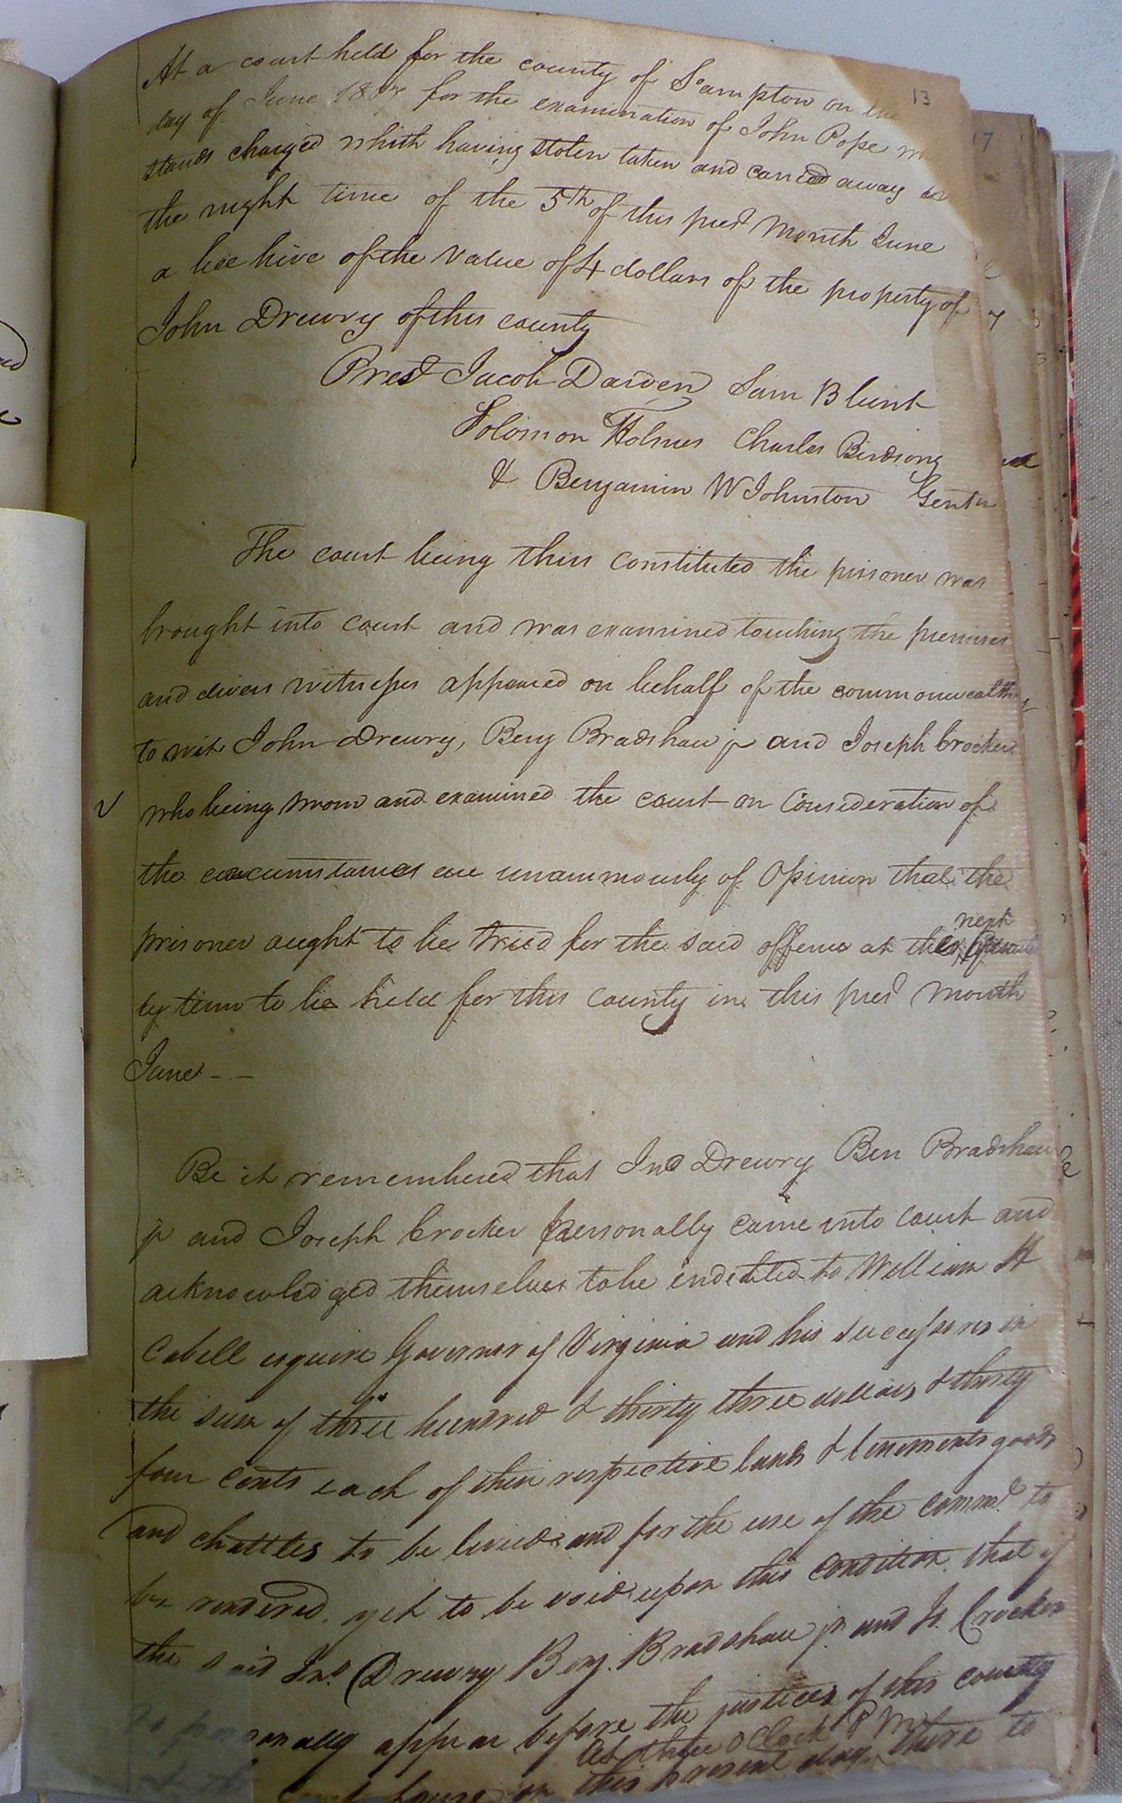 13
17
At a court held for the county of Sampton on the
day of June 1807 for the examination of John Pope
stands charged whith having stolen taken and carried away in
the night time of the 5th of this prest Month June
a bee hive of the value of 4 dollars of the property of
John Drewry of this county
Prest Jacob Darden Sam Blunt
Solomon Holmes Charles Birdsong
& Benjamin W Johnston Gentn
The court being thus constituted the prisoner was
brought into court and was examined touching the premises
and divers witnesses appeared on behalf of the commonwealth
to wit John Drewry, Benj Bradshaw jr and Joseph Crocker
who being sworn and examined the court on Consideration of
the circumstances are unanimously of Opinion that the
next
prisoner aught to be tried for the said offence at the
ly term to be held for this county in this prest month
June
Be it remembered that Jno Drewry Ben Bradshaw
jr and Joseph Crocker personally came into court and
acknowledged themselves to be indebted to William H
Cabell esquire Governor of Virginia and his successors in
the sum of three hundred & thirty three dollars & thirty
four cents each of their respective lands & tenements goods
and chattles to be levied and for the use of the commth to
be rendered, yet to be void upon this condition that if
the said Jno. Drewry Benj. Bradshaw jr and Js. Crocker
do personally appear before the justices of this county
at three o Clock P M
court house on this present day there to